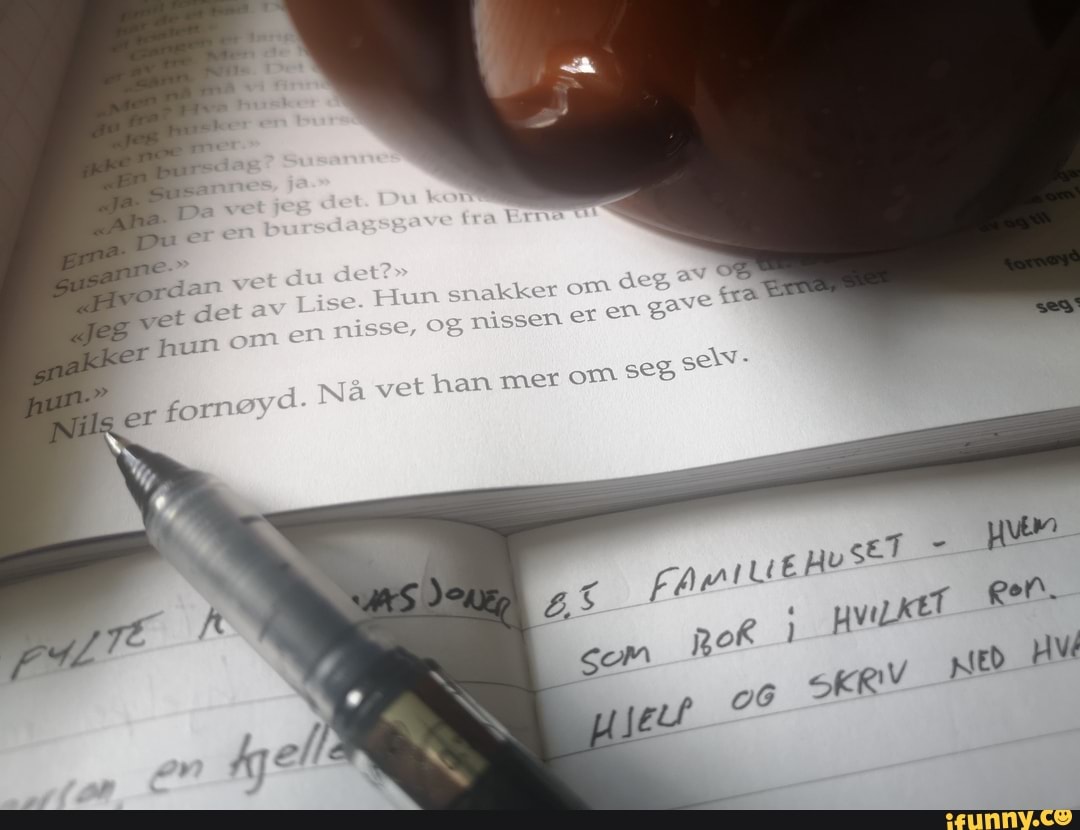 har de et bad. D
et toalett
Gangen er lang
er av tre. Men de
«Sånn, Nils. Det
«Men nå må vi finne
du fra? Hva husker d
«Jeg husker en bursd
ikke noe mer.»
«En bursdag? Susannes
«Ja. Susannes, ja.»
«Aha. Da vet jeg det. Du kom
Erna. Du er en bursdagsgave fra Erna til
Susanne.»
«Hvordan vet du det?»
«Jeg vet det av Lise. Hun snakker om deg av og til.
snakker hun om en nisse, og nissen er en gave fra Erna, sier
hun.»
Nils er fornøyd. Nå vet han mer om seg selv.
om
av og til
fornøyd
seg s
FYLTE K VASJONER
en kjelle
8.5 FAMILIEHUSET - HVEM
SOM BOR i HVILKET ROM.
HJELP OG SKRIV NED HVA
ifunny.co